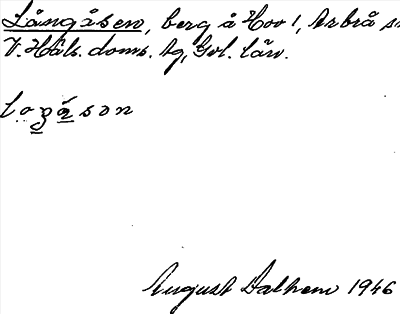 Långåsen, berg å Hov 1, Arbrå
V. Häls. doms. lg, Gvl. län.
August Dalhem 1946